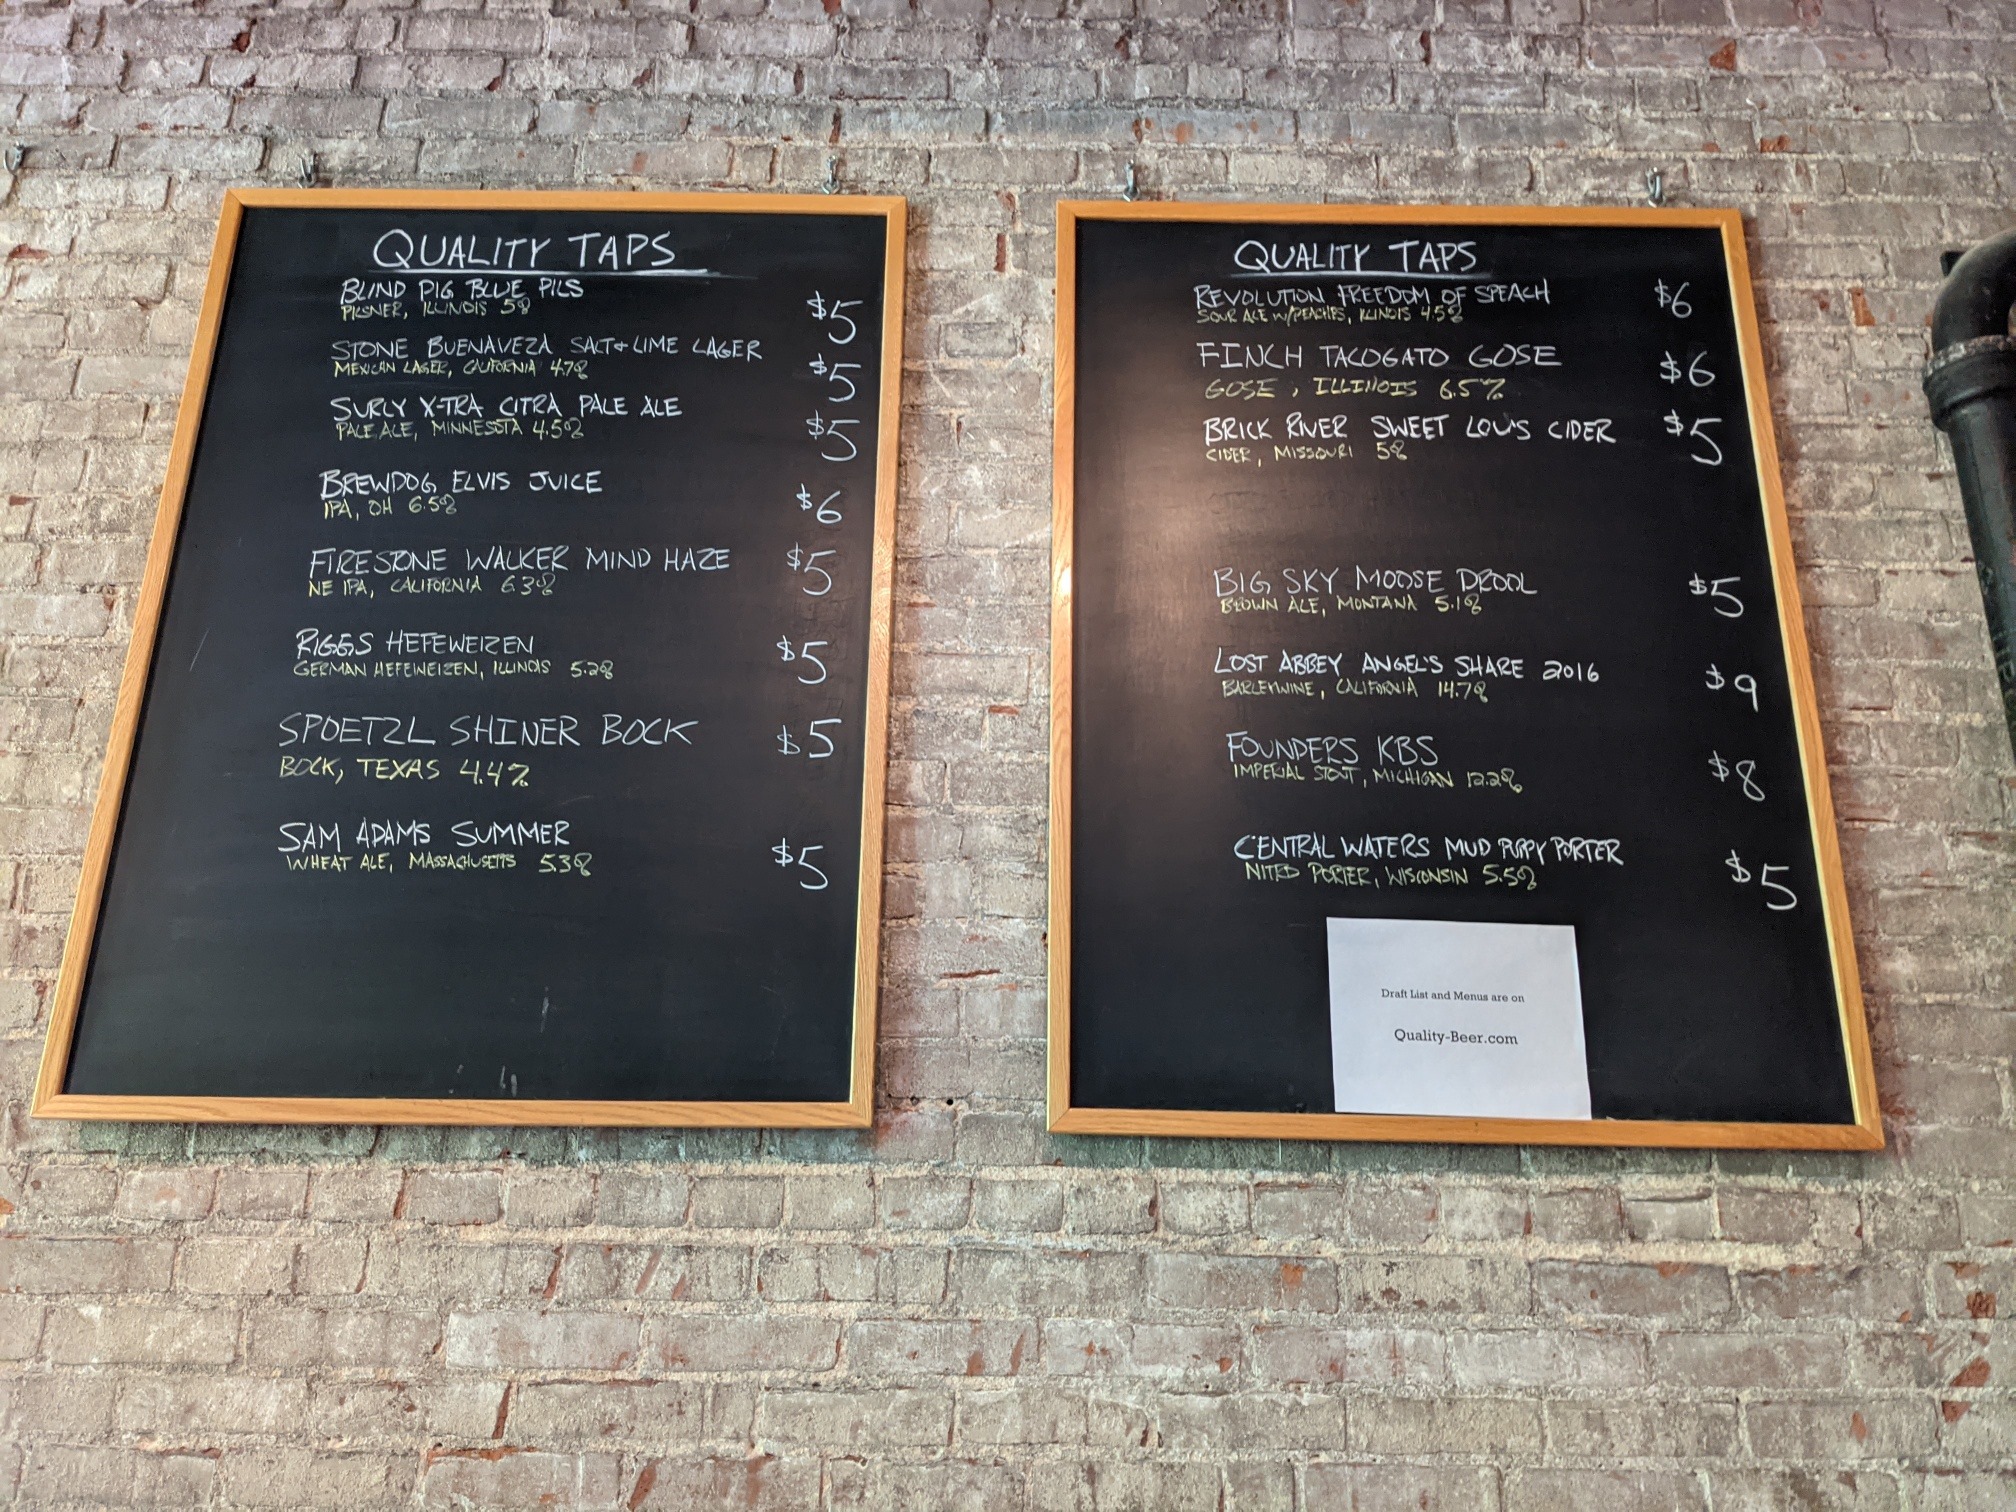 QUALITY TAPS
BLIND PIG BLUE PILS $5
PILSNER, ILLINOIS 5%
STONE BUENAVEZA SALT & LIME LAGER $5
MEXICAN LAGER, CALIFORNIA 4.7%
SURLY X-TRA CITRA PALE ALE $5
PALE ALE, MINNESOTA 4.5%
BREWDOG ELVIS JUICE $6
IPA, OH 6.5%
FIRESTONE WALKER MIND HAZE $5
NE IPA, CALIFORNIA 6.3%
RIGGS HEFEWEIZEN $5
GERMAN HEFEWEIZEN, ILLINOIS 5.2%
SPOETZL SHINER BOCK $5
BOCK, TEXAS 4.4%
SAM ADAMS SUMMER $5
WHEAT ALE, MASSACHUSETTS 5.3%
QUALITY TAPS
REVOLUTION FREEDOM OF SPEACH $6
SOUR ALE W/PEACHES, ILLINOIS 4.5%
FINCH TACOGATO GOSE $6
GOSE, ILLINOIS 6.5%
BRICK RIVER SWEET LOU'S CIDER $5
CIDER, MISSOURI 5%
BIG SKY MOOSE DROOL $5
BROWN ALE, MONTANA 5.1%
LOST ABBEY ANGEL'S SHARE 2016 $9
BARLEYWINE, CALIFORNIA 14.7%
FOUNDERS KBS $8
IMPERIAL STOUT, MICHIGAN 12.2%
CENTRAL WATERS MUD PUPPY PORTER $5
NITRO PORTER, WISCONSIN 5.5%
Draft List and Menus are on
Quality-Beer.com